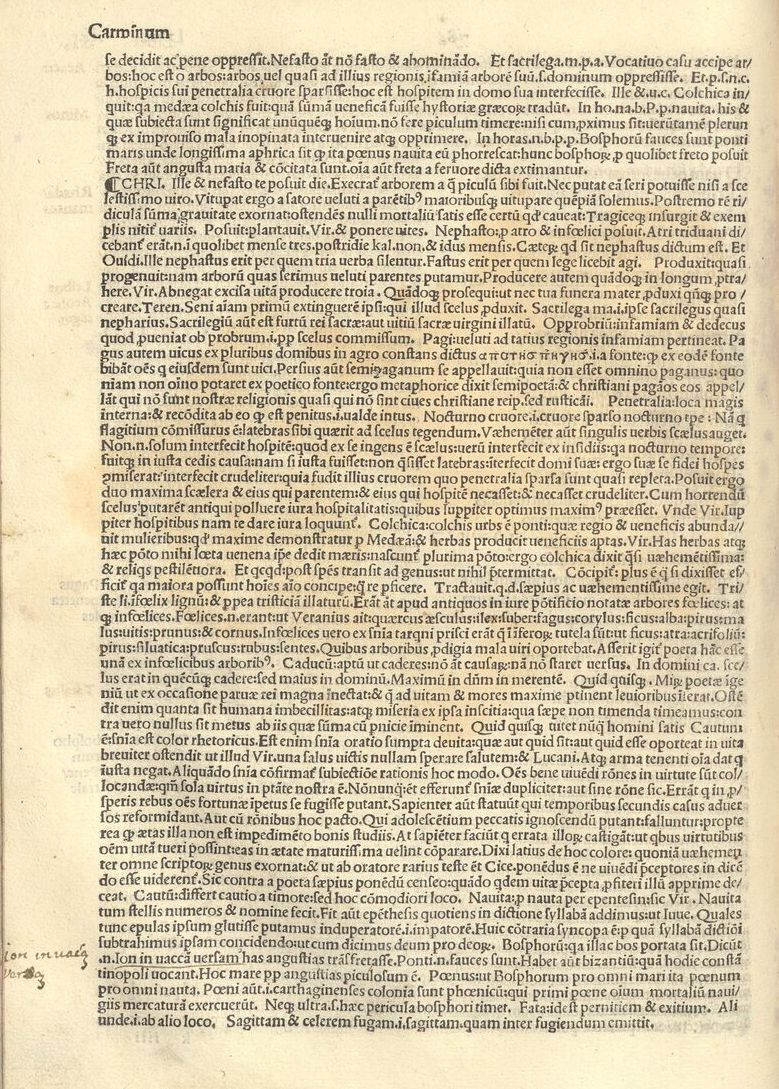 Carminum
se decidit ac pene oppressit. Nefasto āt nō fasto & abominādo. Et sacrilega.m.p.a. Vocatiuo casu accipe ar/
bos:hoc est o arbos:arbos uel quasi ad illius regionis īfamiā arborē suū.s.dominum oppressisse. Et.p.s.n.c.
h.hospicis sui penetralia cruore sparsisse:hoc est hospitem in domo sua interfecisse. Ille &.u.c. Colchica in/
quit:qa medæa colchis fuit:quā sūmā ueneficā fuisse hystoriæ græcoꝝ tradūt. In ho.na.b.P.p.nauita. his &
quæ subiecta sunt significat unūquēꝗ hoīum.nō fere piculum timere:nisi cum,pximus sit:uerūtamē plerun
ꝗ ex improuiso mala inopinata interuenire atꝗ opptimere. In horas.n.b.p.p. Bosphorū fauces sunt ponti
maris unde longissima aphrica sit ꝙ ita pœnus nauita eū phorrescat:hunc bosphoꝝ,p quolibet freto posuit
Freta aūt angusta maria & cōcitata sunt.oīa aūt freta a feruore dicta extimantur.
¶CHRI. Ille & nefasto te posuit die. Execrat̃ arborem a q̄ piculū sibi fuit. Nec putat eā seri potuisse nisi a sce
lestissimo uiro. Vitupat ergo a satore ueluti a parētibꝰ maioribusꝗ uitupare quēpiā solemus. Postremo rē ri/
diculā sūma grauitate exornat:ostendēs nulli mortaliū satis esse certū qd̓ caueat:Tragiceꝗ insurgit & exem
plis nitit̃ uariis. Posuit:plantauit. Vir.& ponere uites. Nephasto:,p atro & infœlici posuit. Atri triduani di/
cebant̃ erāt.n.ī quolibet mense tres.postridie kal.non.& idus mensis. Cæteꝝ qd sit nephastus dictum est. Et
Ouidi.Ille nephastus erit per quem tria uerba silentur. Fastus erit per quem lege licebit agi. Produxit:quasi
progenuit:nam arborū quas serimus ueluti parentes putamur. Producere autem quādoꝗ in longum ,ptra/
here. Vir. Abnegat excisa uitā producere troia. Quādoꝗ prosequi:ut nec tua funera mater ,pduxi qñꝗ pro /
creare. Teren. Seni aīam primū extinguerē ipsi:qui illud scelus ,pduxit. Sacrilega ma.i.ipse sacrilegus quasi
nepharius. Sacrilegiū aūt est furtū rei sacræ:aut uitiū sacræ uirgini illatū. Opprobriū:infamiam & dedecus
quod ,pueniat ob probrum.i.pp scelus commissum. Pagi:ueluti ad tatius regionis infamiam pertineat. Pa
gus autem uicus ex pluribus domibus in agro constans dictus απο τησ πηγησ.i.a fonte:ꝙ ex eodē fonte
bibāt oēs q eiusdem sunt uici. Persius aūt semipaganum se appellauit:quia non esset omnino paganus:quo
niam non oīno potaret ex poetico fonte:ergo metaphorice dixit semipoetā:& christiani pagāos eos appel/
lāt qui nō sunt nostræ religionis quasi qui nō sint ciues christiane reip.sed rusticāi. Penetralia:loca magis
interna:& recōdita ab eo ꝙ est penitus.i.ualde intus. Nocturno cruore.i.cruore sparso nocturno tpe : Nā ꝗ
flagitium cōmissurus ē:latebras sibi quærit ad scelus tegendum. Væhemēter aūt singulis uerbis scælus auget.
Non.n.solum interfecit hospitē:quod ex se ingens ē scælus:uerū interfecit ex insidiis:qa nocturno tempore:
fuitꝗ in iusta cedis causa:nam si iusta fuisset:non q̄sisset latebras:īterfecit domi suæ:ergo suæ se fidei hospes
ꝯmiserat:interfecit crudeliter:quia fudit illius cruorem quo penetralia sparsa sunt quasi repleta. Posuit ergo
duo maxima scælera & eius qui parentem:& eius qui hospitē necasset:& necasset crudeliter. Cum horrendū
scelus putarēt antiqui polluere iura hospitalitatis:quibus Iuppiter optimus maximꝰ præesset. Vnde Vir.Iup
piter hospitibus nam te dare iura loquunt̃. Colchica:colchis urbs ē ponti:quæ regio & ueneficis abunda//
uit mulieribus:qd̓ maxime demonstratur p Medæā:& herbas producit ueneficiis aptas. Vir.Has herbas atꝗ
hæc pōto mihi lœta uenena ipe dedit mæris:nascunt̃ plurima pōto:ergo colchica dixit q̄si uæhemētissima:
& reliqs pestilētiora. Et qcqd:post spēs transit ad genus:ut nihil p̄termittat. Cōcipit̃: plus ē q̄ si dixisset ef/
ficit̃ qa maiora possunt hoīes aīo concipe:q̄ re pficere. Tractauit.q.d.sæpius ac uæhementissime egit. Tri/
ste li.īfœlix lignū:& ppea tristiciā illaturū. Erāt āt apud antiquos in iure pōtificio notatæ arbores fœlices: at
ꝗ infœlices. Fœlices.n.erant:ut Veranius ait:quercus æsculus:ilex:suber:fagus:corylus:ficus:alba:pirus:ma
lus:uitis:prunus:& cornus. Infœlices uero ex snīa tarqni prisci erāt q̄ īferoꝝ tutela sūt:ut ficus:atra:acrifoliū:
pirus:siluatica:pruscus:rubus:sentes. Quibus arboribus ,pdigia mala uiri oportebat. Asserit igit̃ poeta hāc esse
unā ex infœlicibus arboribꝰ. Caducū:aptū ut caderes:nō āt causaꝝ:nā nō staret uersus. In domini ca. sce/
lus erat in quēcūꝗ cadere:sed maius in dominū. Maximū in dūm in merentē. Quid quisꝗ. Miꝝ poetæ īge
niū ut ex occasione paruæ rei magna īnectat:& q̄ ad uitam & mores maxime ptinent leuioribus īserat. Ostē
dit enim quanta sit humana imbecillitas:atꝗ miseria ex ipsa inscitia:qua sæpe non timenda timeamus:con
tra uero nullus sit metus ab iis quæ sūma cū pnicie iminent. Quid quisꝗ uitet nūꝗ homini satis Cautum
ē:snīa est color rhetoricus. Est enim snīa oratio sumpta deuita:quæ aut quid sit:aut quid esse oporteat in uita
breuiter ostendit ut illud Vir.una salus uictis nullam sperare salutem:& Lucani. Atꝗ arma tenenti oīa dat ꝗ
iusta negat. Aliquādo snīa cōfirmat̃ subiectiōe rationis hoc modo. Oēs bene uiuēdi rōnes in uirtute sūt col/
locandæ:qm̄ sola uirtus in ptāte nostra ē. Nōnunꝗ:ēt efferunt̃ snīæ dupliciter:aut sine rōne sic. Errāt q in ,p/
speris rebus oēs fortunæ īpetus se fugisse putant. Sapienter aūt statuūt qui temporibus secundis casus aduer
sos reformidant. Aut cū rōnibus hoc pacto. Qui adolescētium peccatis ignoscendū putant:falluntur:propte
rea ꝙ ætas illa non est impedimēto bonis studiis. At sapiēter faciūt q errata illoꝝ castigāt:ut qbus uirtutibus
oēm uitā tueri possint:eas in ætate maturissima uelint cōparare. Dixi latius de hoc colore: quoniā uæhemeu
ter omne scriptoꝝ genus exornat:& ut ab oratore rarius teste ēt Cice.ponēdus ē ne uiuēdi p̄ceptores in dicē
do esse uiderent̃. Sic contra a poeta sæpius ponēdū censeo:quādo qdem uitæ p̄cepta ,pfiteri illū apprime de/
ceat. Cautū:differt cautio a timore:sed hoc cōmodiori loco. Nauita:,p nauta per epentesin:sic Vir. Nauita
tum stellis numeros & nomine fecit. Fit aūt epēthesis quotiens in dictione syllabā addimus:ut Iuue. Quales
tunc epulas ipsum glutisse putamus induperatorē.i.impatorē. Huic cōtraria syncopa ē:p quā syllabā dictiōi
subtrahimus ipsam concidendo:ut cum dicimus deum pro deoꝝ. Bosphorū:qa illac bos portata sit. Dicūt
.n.Ion in uaccā uersam has angustias trāsfretasse. Ponti.n.fauces sunt. Habet aūt bizantiū:quā hodie constā
tinopoli uocant. Hoc mare pp angustias piculosum ē. Pœnus:ut Bosphorum pro omni mari ita pœnum
pro omni nauta. Pœni aūt.i.carthaginenses colonia sunt phœnicū:qui primi pœne oīum mortaliū naui/
giis mercaturā exercuerūt. Neꝗ ultra.s.hæc pericula bosphori timet. Fata:idest perniciem & exitium. Ali
unde.i.ab alio loco. Sagittam & celerem fugam.i.sagittam.quam inter fugiendum emittit.
Ion in uacꝗ
versa